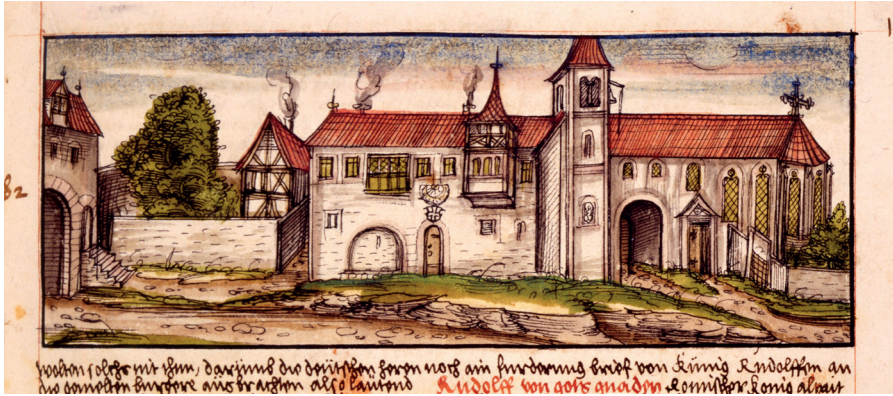 82
wolten solchs mit ihm, darumb die deutschen heren noch ain furderung brief von Künig Rudolffen an
die gemelten burgere aůsbrachten also laůtend Rudolff von gots gnaden Romischer konig